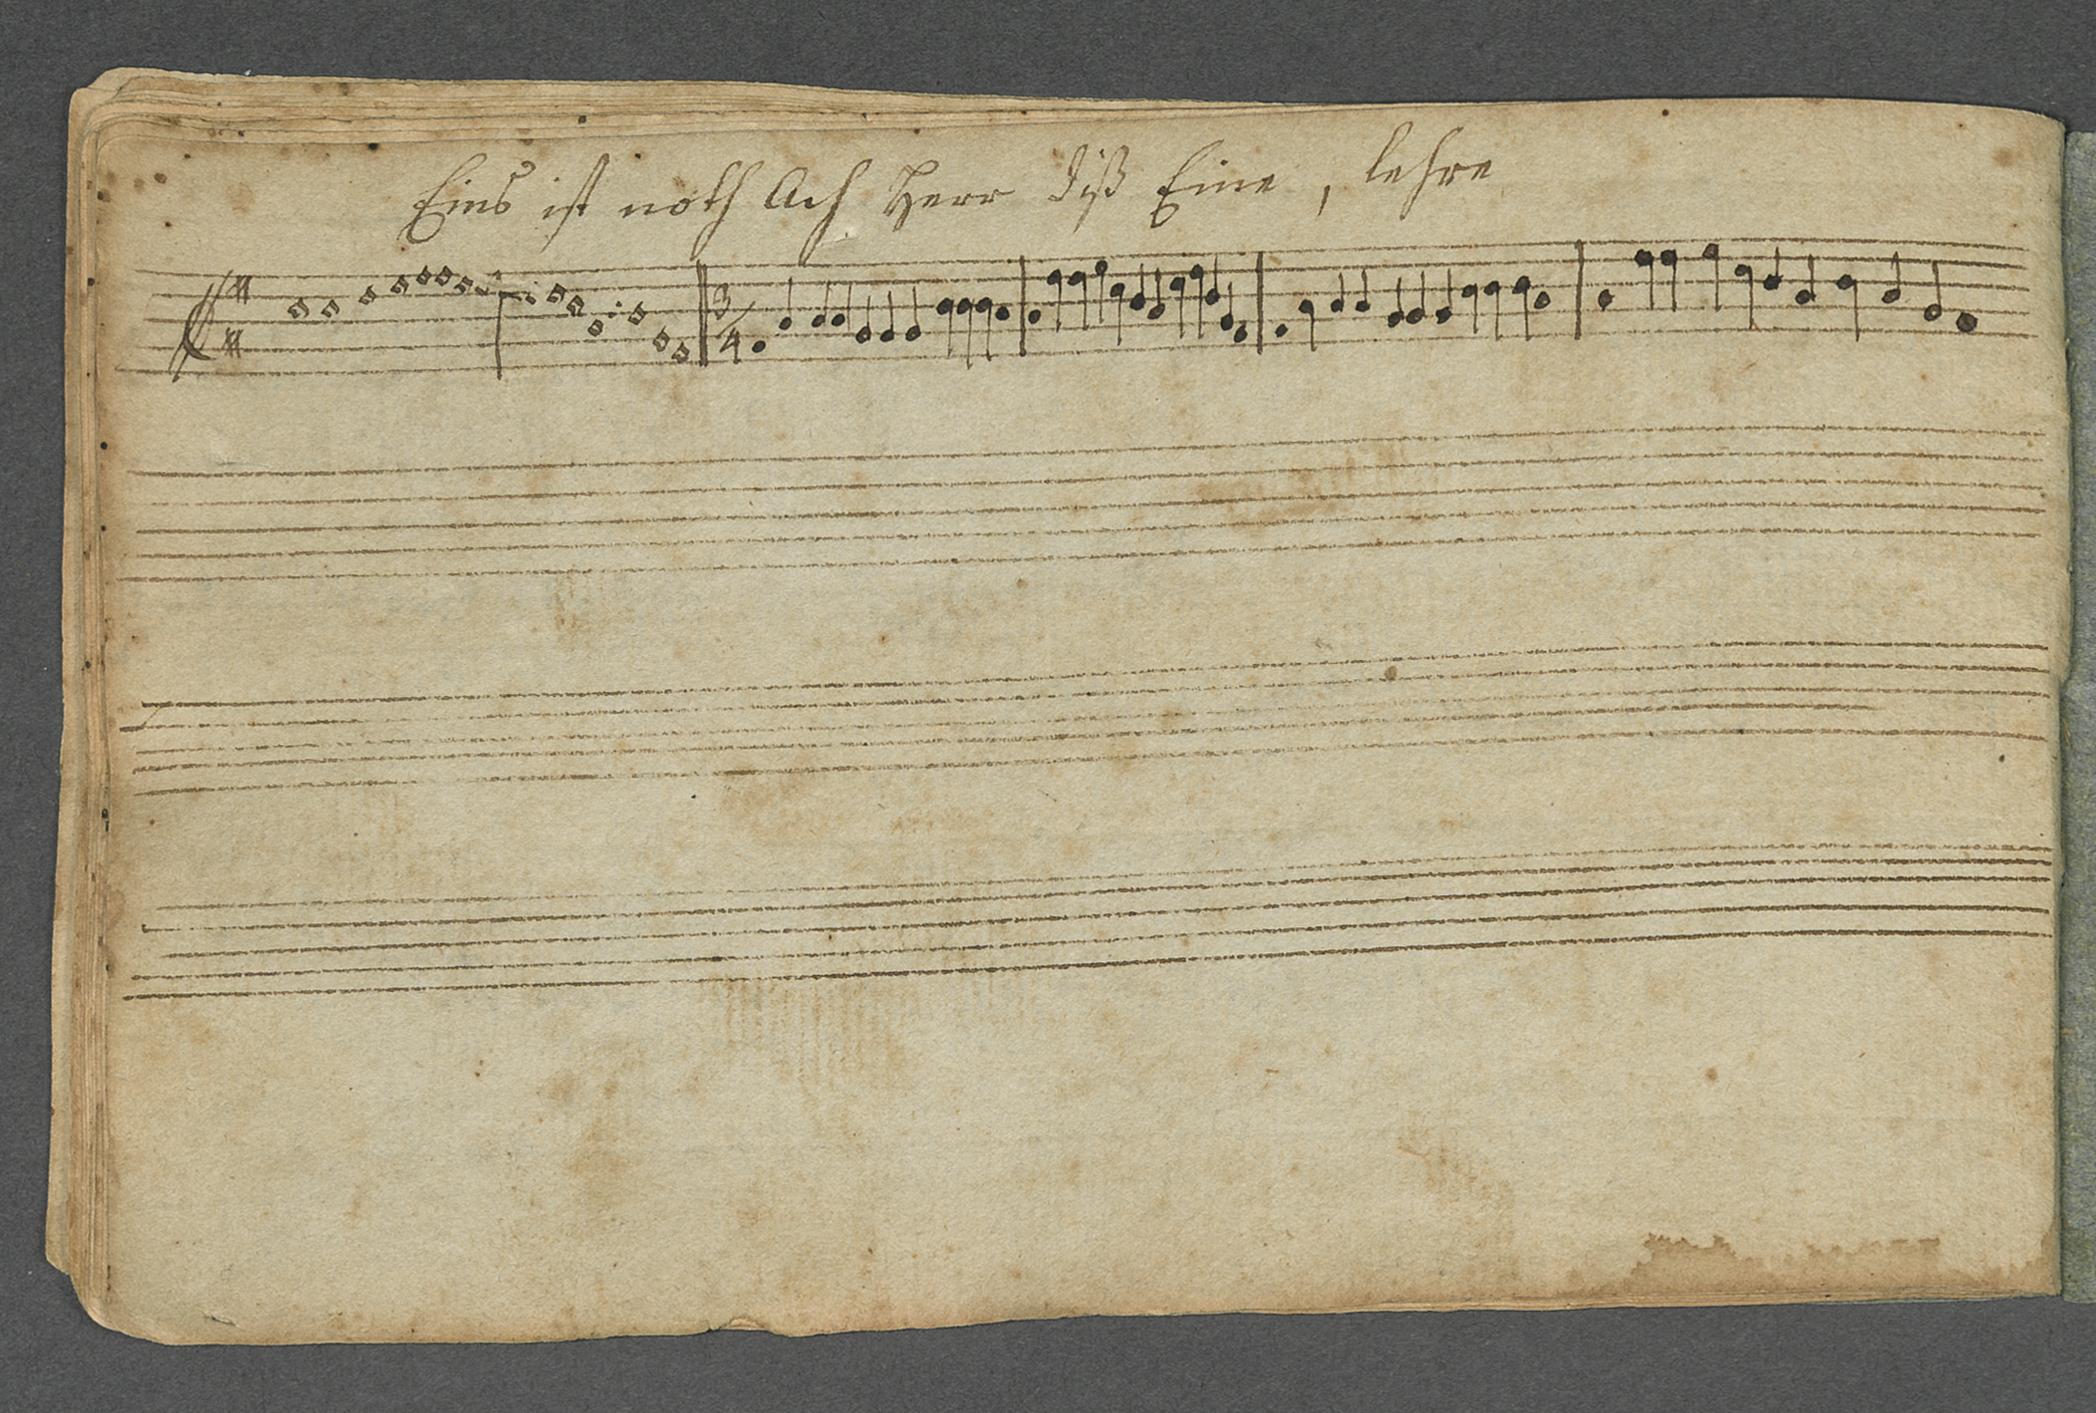 Eins ist noth Ach Herr diß Eine, lehre
3/4